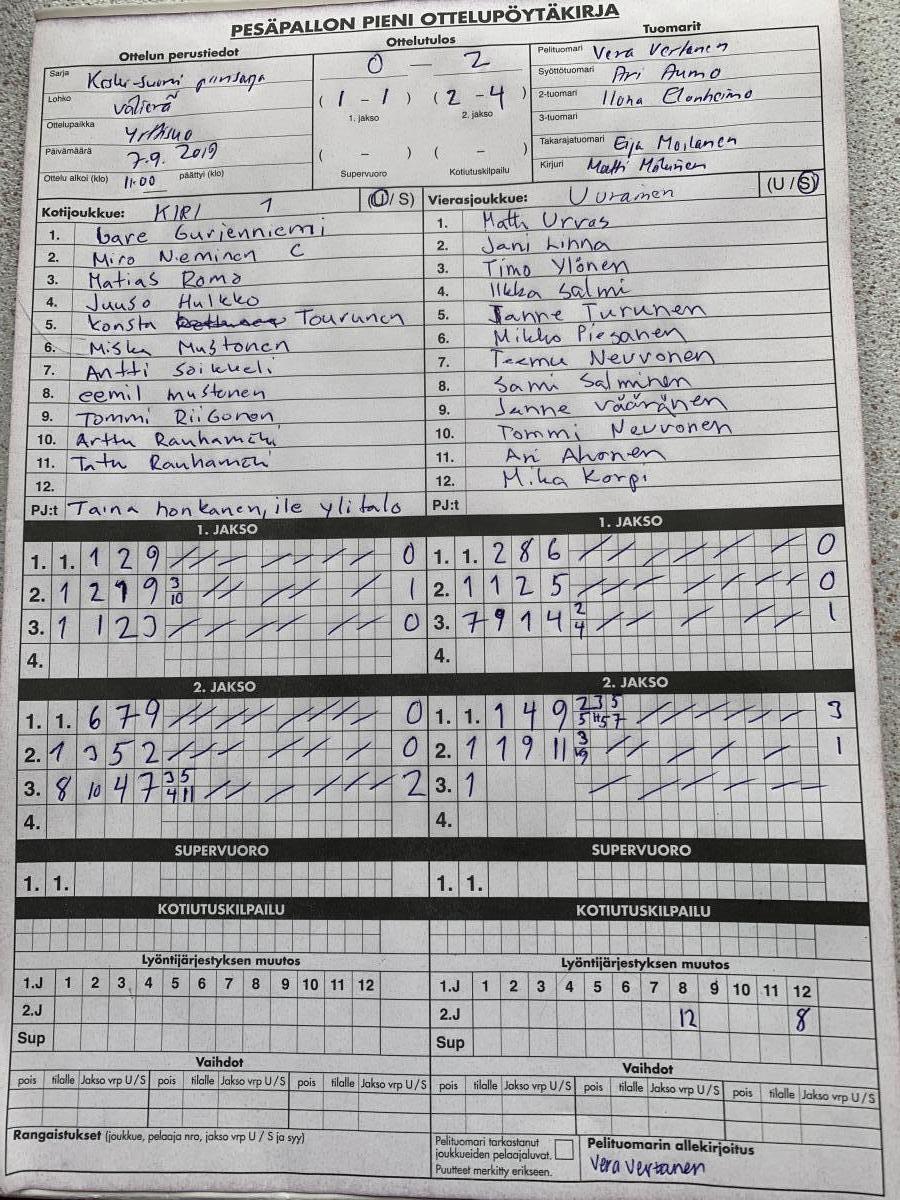 PESÄPALLON PIENI OTTELUPÖYTÄKIRJA
Ottelun perustiedot
Sarja Keski-Suomi
Lohko välierä
Ottelupaikka
Päivämäärä 7.9. 2019
Ottelu alkoi (klo) 11.00 päättyi (klo)
Ottelutulos
0 — 2
( 1 - 1 ) ( 2 - 4 )
1. jakso 2. jakso
( - ) ( - )
Supervuoro Kotiutuskilpailu
Tuomarit
Pelituomari Vera Vertanen
Syöttötuomari Ari Aumo
2-tuomari Ilona Elonheimo
3-tuomari
Takarajatuomari Eija Moilanen
Kirjuri Matti Moilanen
Kotijoukkue: KIRI 1 (U / S)
1. Gurjenniemi
2. Miro Nieminen C
3. Matias Romo
4. Juuso Hulkko
5. Konsta Tourunen
6. Miska Mustonen
7. Antti Soikkeli
8. eemil mustonen
9. Tommi Riigonen
10. Arttu Rauhamäki
11. Tatu Rauhamäki
12.
PJ:t Taina honkanen, ile ylitalo
Vierasjoukkue: Uurainen (U / S)
1. Matti Urvas
2. Jani Linna
3. Timo Ylönen
4. Ilkka Salmi
5. Janne Turunen
6. Mikko Piesanen
7. Teemu Nevvonen
8. Sami Salminen
9. Janne Vääränen
10. Tommi Nevvonen
11. Ari Ahonen
12. Mika Korpi
PJ:t
1. JAKSO
1. 1. 1 2 9 0
2. 1 2 1 9 3 10 1
3. 1 1 2 3 0
4.
1. JAKSO
1. 1. 2 8 6 0
2. 1 1 2 5 0
3. 7 9 1 4 2 4 1
4.
2. JAKSO
1. 1. 6 7 9 0
2. 1 3 5 2 0
3. 8 10 4 7 3 5 4 11 2
4.
2. JAKSO
1. 1. 1 4 9 2 3 5 3
2. 1 1 9 11 3 1
3. 1
4.
SUPERVUORO
1. 1.
SUPERVUORO
1. 1.
KOTIUTUSKILPAILU
KOTIUTUSKILPAILU
Lyöntijärjestyksen muutos
1.J 1 2 3 4 5 6 7 8 9 10 11 12
2.J
Sup
Lyöntijärjestyksen muutos
1.J 1 2 3 4 5 6 7 8 9 10 11 12
2.J 12 8
Sup
Vaihdot
pois tilalle Jakso vrp U/S pois tilalle Jakso vrp U/S pois tilalle Jakso vrp U/S
Vaihdot
pois tilalle Jakso vrp U/S pois tilalle Jakso vrp U/S pois tilalle Jakso vrp U/S
Rangaistukset (joukkue, pelaaja nro, jakso vrp U / S ja syy)
Pelituomari tarkastanut
joukkueiden pelaajaluvat.
Puutteet merkitty erikseen.
Pelituomarin allekirjoitus
Vera Vertanen